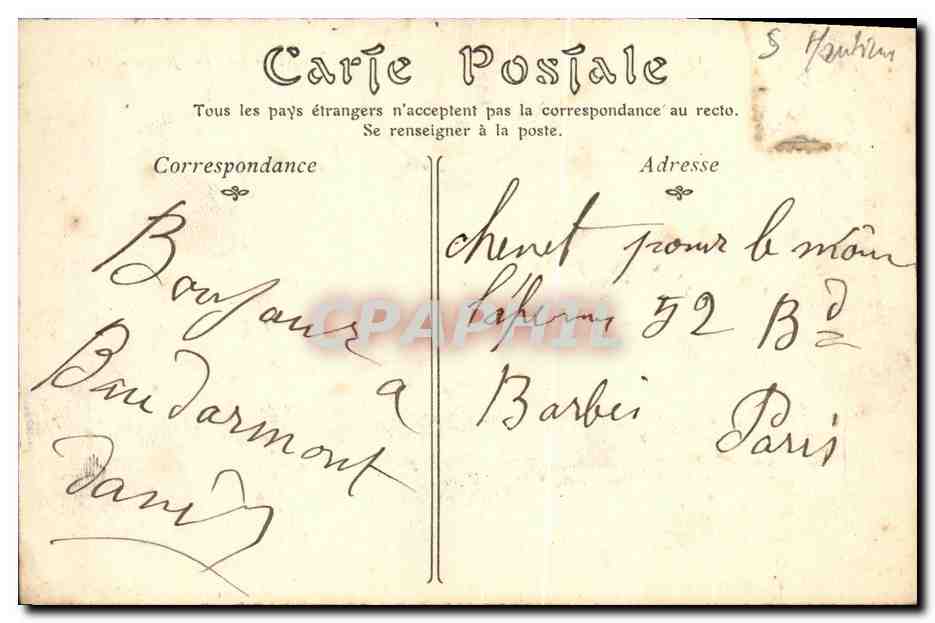 Carte Postale
Tous les pays étrangers n'acceptent pas la correspondance au recto.
Se renseigner à la poste.
Correspondance
Bonjour
a
Baudarmont
David
Adresse
chenet pour le môm
52 Bd
Barbès
Paris
CPAPHIL